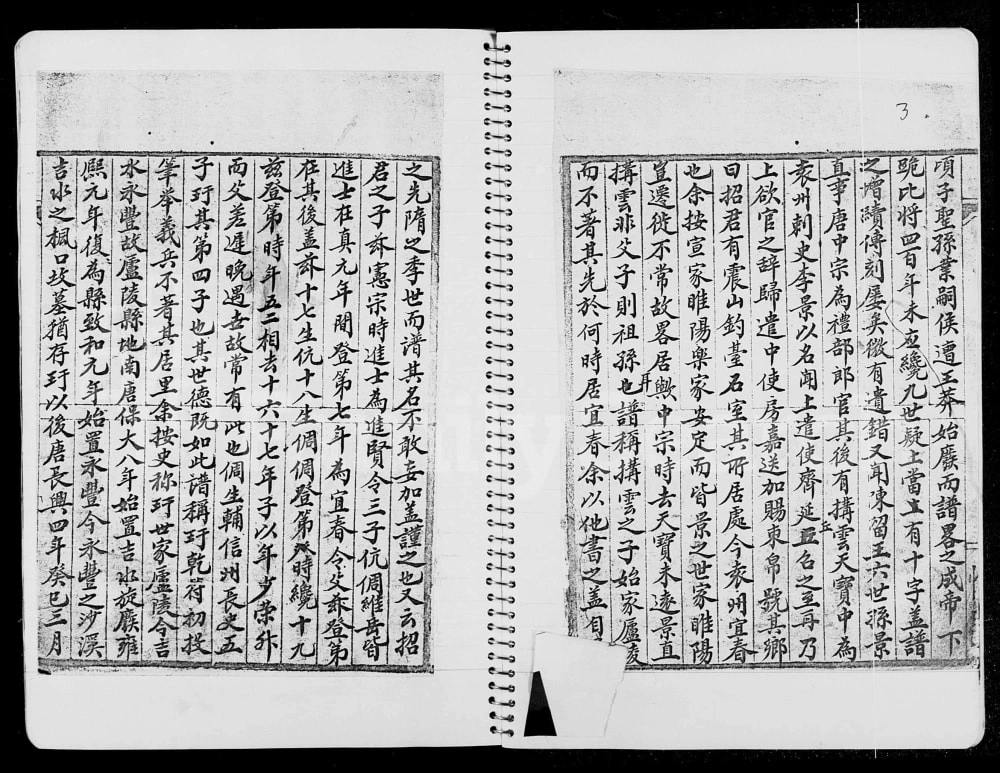 3.
項子聖孫業嗣侯遭王莽始廢而譜畧之成帝下
距比將四百年未應纔九世疑上當直有十字蓋譜
之增續傳刻屡矣微有遺錯又聞陳留王六世孫景
直事唐中宗為禮部郎官其後有搆雲天寶中為
袁州刺史李景以名聞上遣使齊延丘召之至再乃
上欲官之辞歸遣中使房嘉送加賜束帛號其鄉
曰招君有震山釣䑓石室其所居處今袁州宜春
也余按宣家睢陽楽家安定而皆景之世家睢陽
豈遷徙不常故畧居歟中宗時去天寶未遠景直
搆雲非父子則祖孫也譜稱搆雲之子始家廬陵
而不著其先於何時居宜春余以他書之蓋有
之先隋之季世而譜其名不敢妄加盖謹之也又云招
君之子茒憲宗時進士為進賢令三子伉倜維岳皆
進士在真元年間登第七年為宜春令父茒登第
在其後盖茒十七生伉十八生倜倜登第時纔十九
兹登第時年五二相去十六十七年子以年少荣升
而父差遲晚遇古故常有此也倜生輔信州長史五
子玕其第四子也其世德既如此譜稱玕乾符初投
筆举義兵不著其居里余按史称玕世家廬陵今吉
水永豐故廬陵縣地南唐保大八年始置吉水旋廢雍
熈元年復為縣致和元年始置永豐今永豐之沙溪
吉水之楓口坟墓猶存玕以後唐長興四年癸巳二月